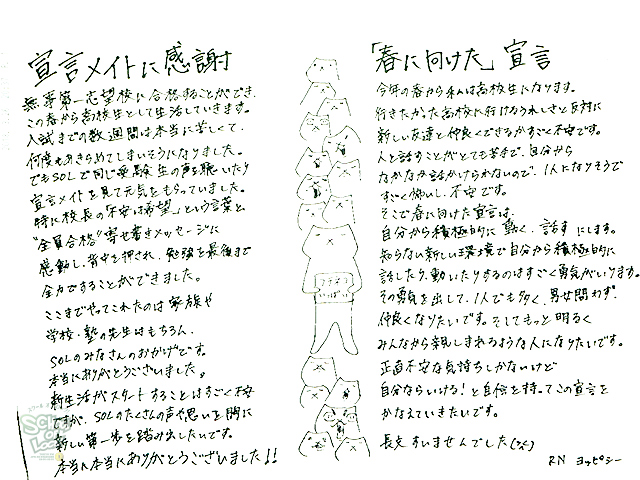 宣言メイトに感謝
無事第一志望校に合格することができ、
この春から高校生として生活していきます。
入試までの数週間は本当に苦しくて、
何度もあきらめてしまいそうになりました。
でもSOLで同じ受験生の声を聴いたり
宣言メイトを見て元気をもらっていました。
特に校長の不安は希望」という言葉と
"全員合格"寄せ書きメッセージに
感動し、背中を押され、勉強を最後まで
全力ですることができました。
ここまでやってこれたのは家族や
学校・塾の先生はもちろん、
SOLのみなさんのおかげです。
本当にありがとうございました。
新生活がスタートすることはすごく不安
ですが、SOLのたくさんの声や思いを胸に
新しい第一歩を踏み出したいです。
本当に本当にありがとうございました!!
「春に向けた」宣言
今年の春から私は高校生になります。
行きたかった高校に行けるうれしさと反対に
新しい友達と仲良くできるかすごく不安です。
人と話すことがとても苦手で、自分から
なかなか話かけられないので、1人になりそうで
すごく怖いし、不安です。
そこで春に向けた宣言は、
自分から積極的に動く、話す にします。
知らない新しい環境で自分から積極的に
話したり、動いたりするのはすごく勇気がいります。
その勇気を出して、1人でも多く、男女問わず、
仲良くなりたいです。そしてもっと明るく
みんなから親しまれるような人になりたいです。
正直不安な気持ちしかないけど
自分ならいける!と自信を持ってこの宣言を
かなえていきたいです。
長文すいませんでした
RN ヨッピシー